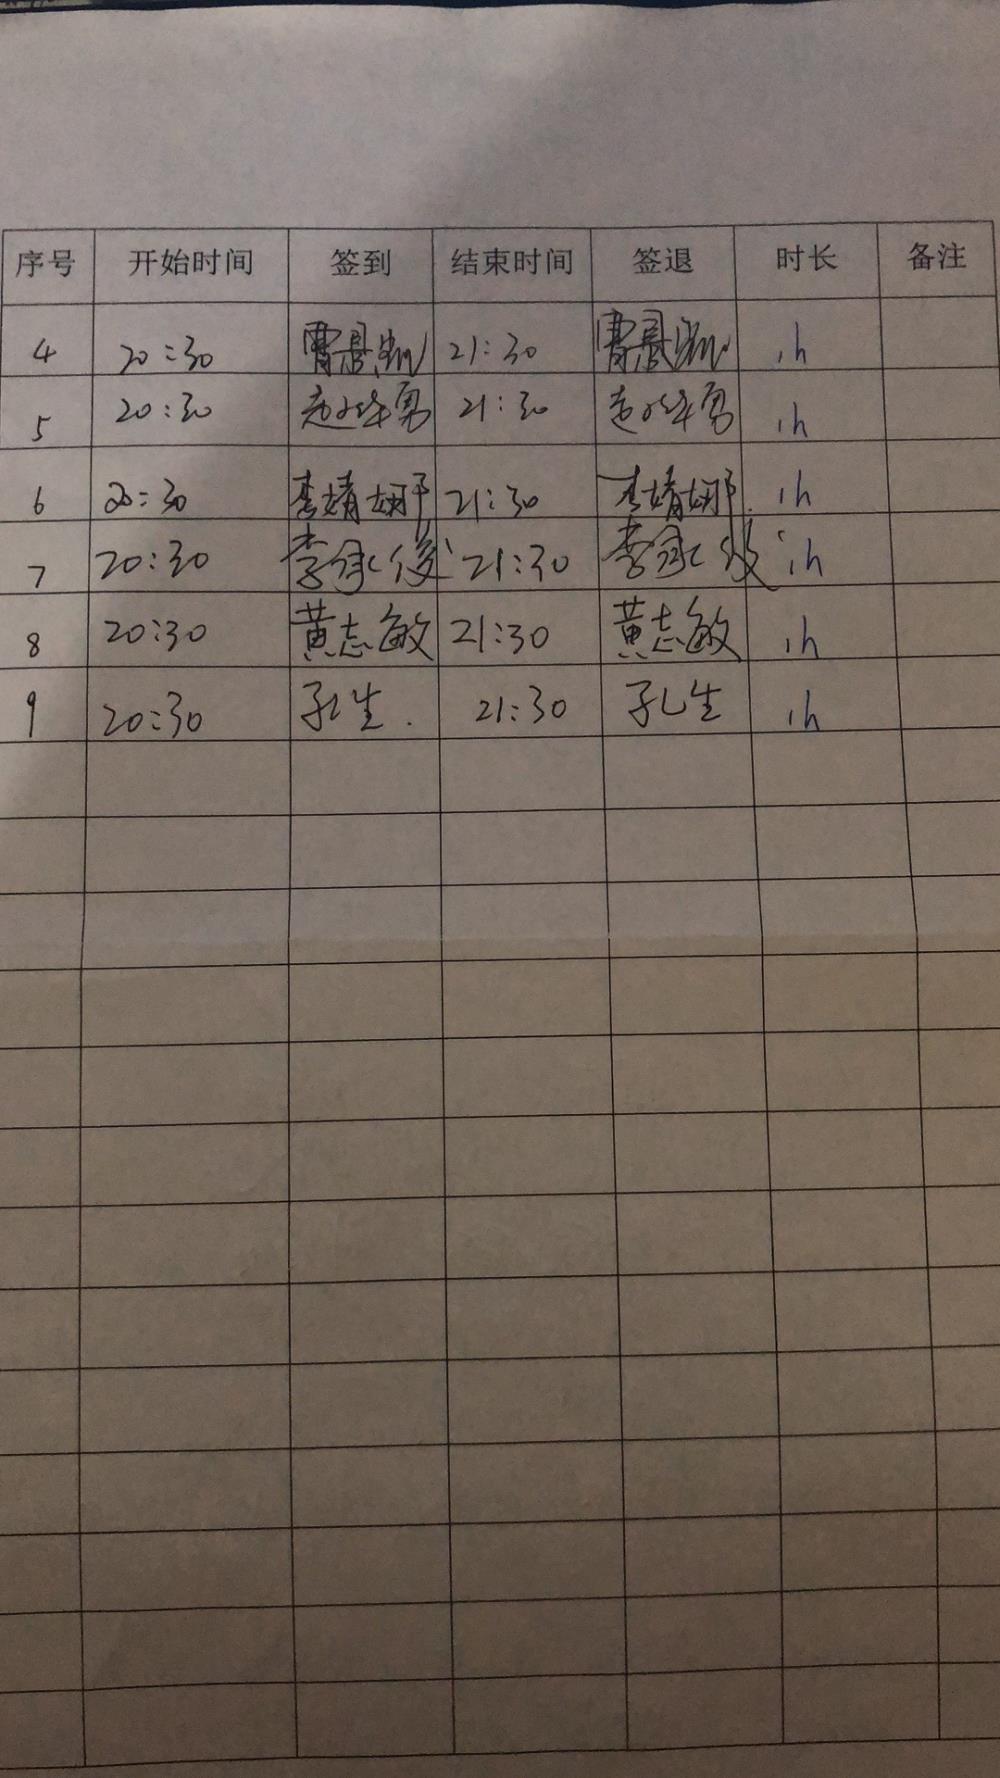 序号 开始时间 签到 结束时间 签退 时长 备注
4 20:30 曹景 21:30 曹景 1h
5 20:30 赵华勇 21:30 赵华勇 1h
6 20:30 李婧娜 21:30 李婧娜 1h
7 20:30 李承俊 21:30 李承俊 1h
8 20:30 黄志敏 21:30 黄志敏 1h
9 20:30 孔生. 21:30 孔生 1h